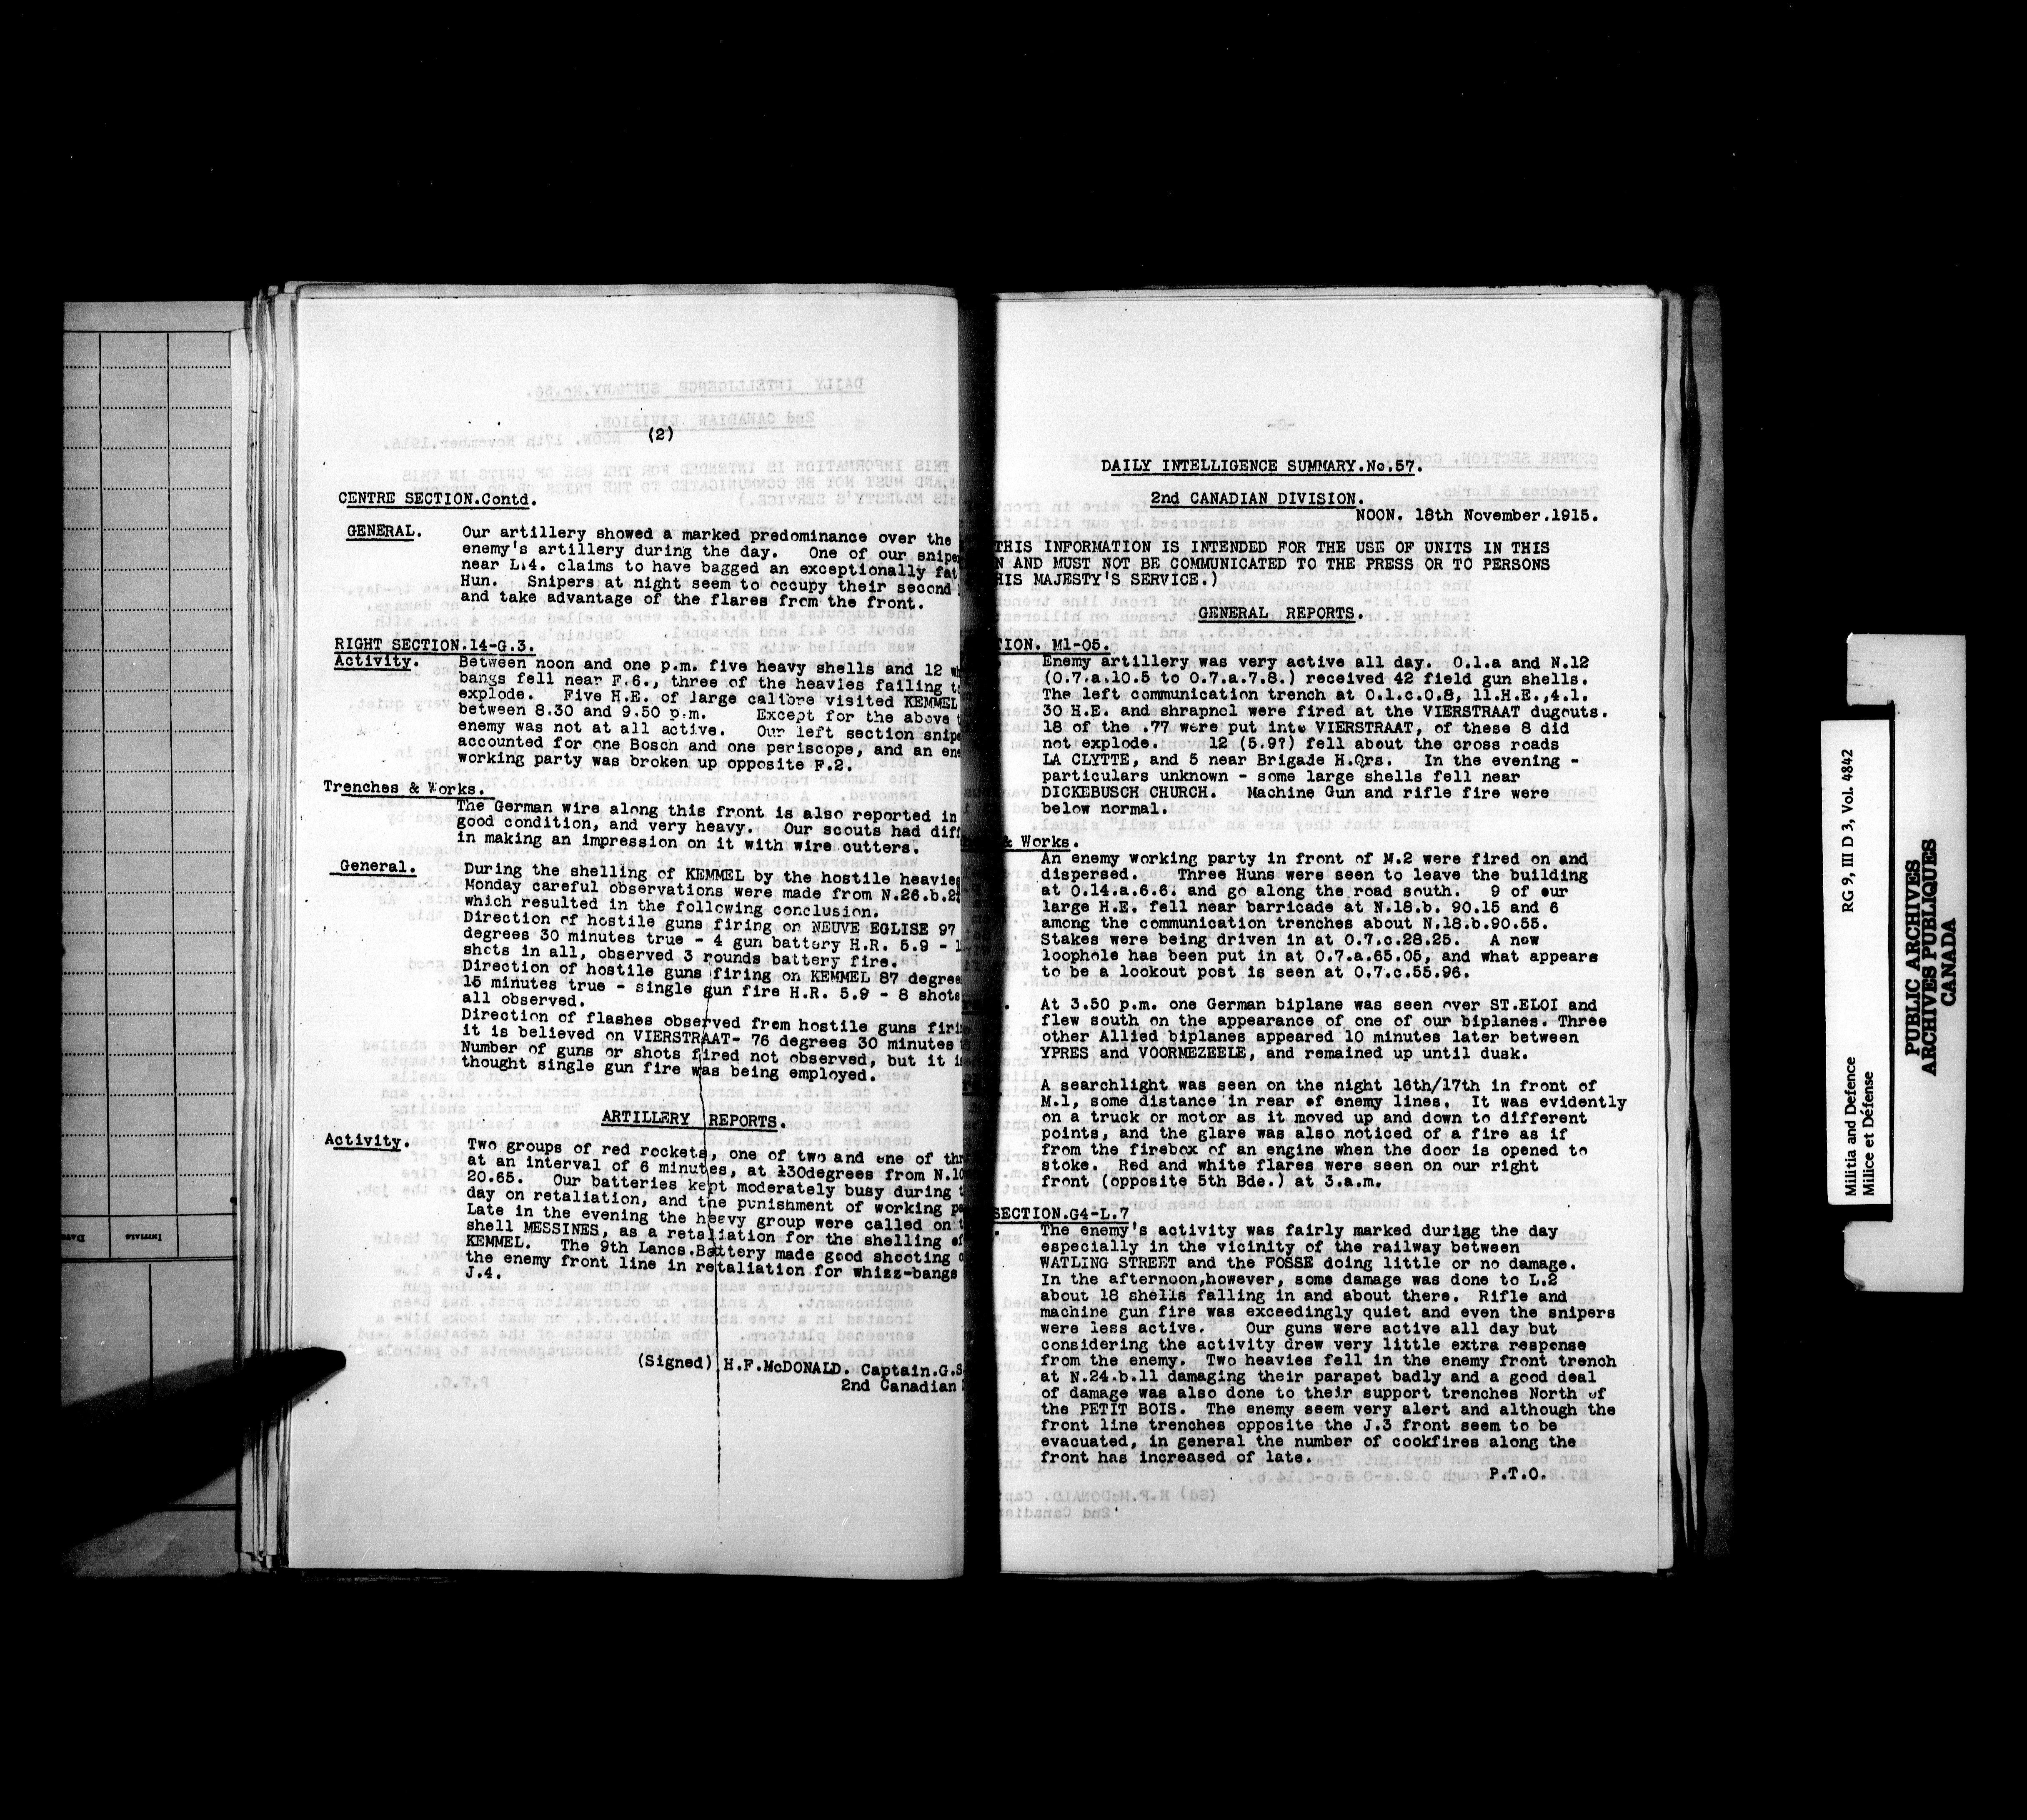 (2)
CENTRE SECTION.Contd.
GENERAL. Our artillery showed a marked predominance over the
enemy's artillery during the day. One of our
near L.4. claims to have bagged an exceptionally fat
Hun. Snipers at night seem to occupy their second
and take advantage of the flares from the front.
RIGHT SECTION.14-G.3.
Activity. Between noon and one p.m. five heavy shells and 12
bangs fell near F.6., three of the heavies failing
explode. Five H.E. of large calibre visited KEMMEL
between 8.30 and 9.50 p.m. Except for the above
enemy was not at all active. Our left section
accounted for one Bosch and one periscope, and an
working party was broken up opposite F.2.
Trenches & Works.
The German wire along this front is also reported in
good condition, and very heavy. Our scouts had
in making an impression on it with wire cutters.
General. During the shelling of KEMMEL by the hostile
Monday careful observations were made from
which resulted in the following conclusion.
Direction of hostile guns firing on NEUVE EGLISE 97
degrees 30 minutes true - 4 gun battery H.R. 5.9 -
shots in all, observed 3 rounds battery fire.
Direction of hostile guns firing on KEMMEL 87
15 minutes true - single gun fire H.R. 5.9 - 8 shots
all observed.
Direction of flashes observed from hostile guns
it is believed on VIERSTRAAT- 76 degrees 30 minutes
Number of guns or shots fired not observed, but it
thought single gun fire was being employed.
ARTILLERY REPORTS.
Activity. Two groups of red rockets, one of two and one of
at an interval of 6 minutes, at 130degrees from
20.65. Our batteries kept moderately busy during
day on retaliation, and the punishment of working
Late in the evening the heavy group were called on
shell MESSINES, as a retaliation for the shelling of
KEMMEL. The 9th Lancs.Battery made good shooting
the enemy front line in retaliation for whizz-bangs
J.4.
(Signed) H.F.McDONALD. Captain.G.S
2nd Canadian
DAILY INTELLIGENCE SUMMARY.No.57.
2nd CANADIAN DIVISION.
NOON. 18th November.1915.
THIS INFORMATION IS INTENDED FOR THE USE OF UNITS IN THIS
N AND MUST NOT BE COMMUNICATED TO THE PRESS OR TO PERSONS
HIS MAJESTY'S SERVICE.)
GENERAL REPORTS.
TION. M1-05.
Enemy artillery was very active all day. O.1.a and N.12
(O.7.a.10.5 to O.7.a.7.8.) received 42 field gun shells.
The left communication trench at O.1.c.0.8, 11.H.E.,4.1.
30 H.E. and shrapnel were fired at the VIERSTRAAT dugouts.
18 of the .77 were put into VIERSTRAAT, of these 8 did
not explode. 12 (5.9?) fell about the cross roads
LA CLYTTE, and 5 near Brigade H.Qrs. In the evening -
particulars unknown - some large shells fell near
DICKEBUSCH CHURCH. Machine Gun and rifle fire were
below normal.
& Works.
An enemy working party in front of M.2 were fired on and
dispersed. Three Huns were seen to leave the building
at O.14.a.6.6. and go along the road south. 9 of our
large H.E. fell near barricade at N.18.b. 90.15 and 6
among the communication trenches about N.18.b.90.55.
Stakes were being driven in at O.7.c.28.25. A new
loophole has been put in at O.7.a.65.05, and what appears
to be a lookout post is seen at O.7.c.55.96.
At 3.50 p.m. one German biplane was seen over ST.ELOI and
flew south on the appearance of one of our biplanes. Three
other Allied biplanes appeared 10 minutes later between
YPRES and VOORMEZEELE, and remained up until dusk.
A searchlight was seen on the night 16th/17th in front of
M.1, some distance in rear of enemy lines. It was evidently
on a truck or motor as it moved up and down to different
points, and the glare was also noticed of a fire as if
from the firebox of an engine when the door is opened to
stoke. Red and white flares were seen on our right
front (opposite 5th Bde.) at 3.a.m.
SECTION.G4-L.7
The enemy's activity was fairly marked during the day
especially in the vicinity of the railway between
WATLING STREET and the FOSSE doing little or no damage.
In the afternoon,however, some damage was done to L.2
about 18 shells falling in and about there. Rifle and
machine gun fire was exceedingly quiet and even the snipers
were less active. Our guns were active all day but
considering the activity drew very little extra response
from the enemy. Two heavies fell in the enemy front trench
at N.24.b.11 damaging their parapet badly and a good deal
of damage was also done to their support trenches North of
the PETIT BOIS. The enemy seem very alert and although the
front line trenches opposite the J.3 front seem to be
evacuated, in general the number of cookfires along the
front has increased of late.
P.T.O.
Militia and Defence RG 9, III D 3, Vol. 4842
Milice et Défense
PUBLIC ARCHIVES
ARCHIVES PUBLIQUES
CANADA